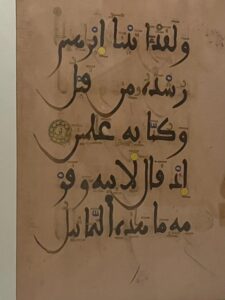 ولقد اتينا ابرهيم
رشده من قبل
وكنا به علمين
اذ قال لابيه وقو
مه ما هذه التماثيل